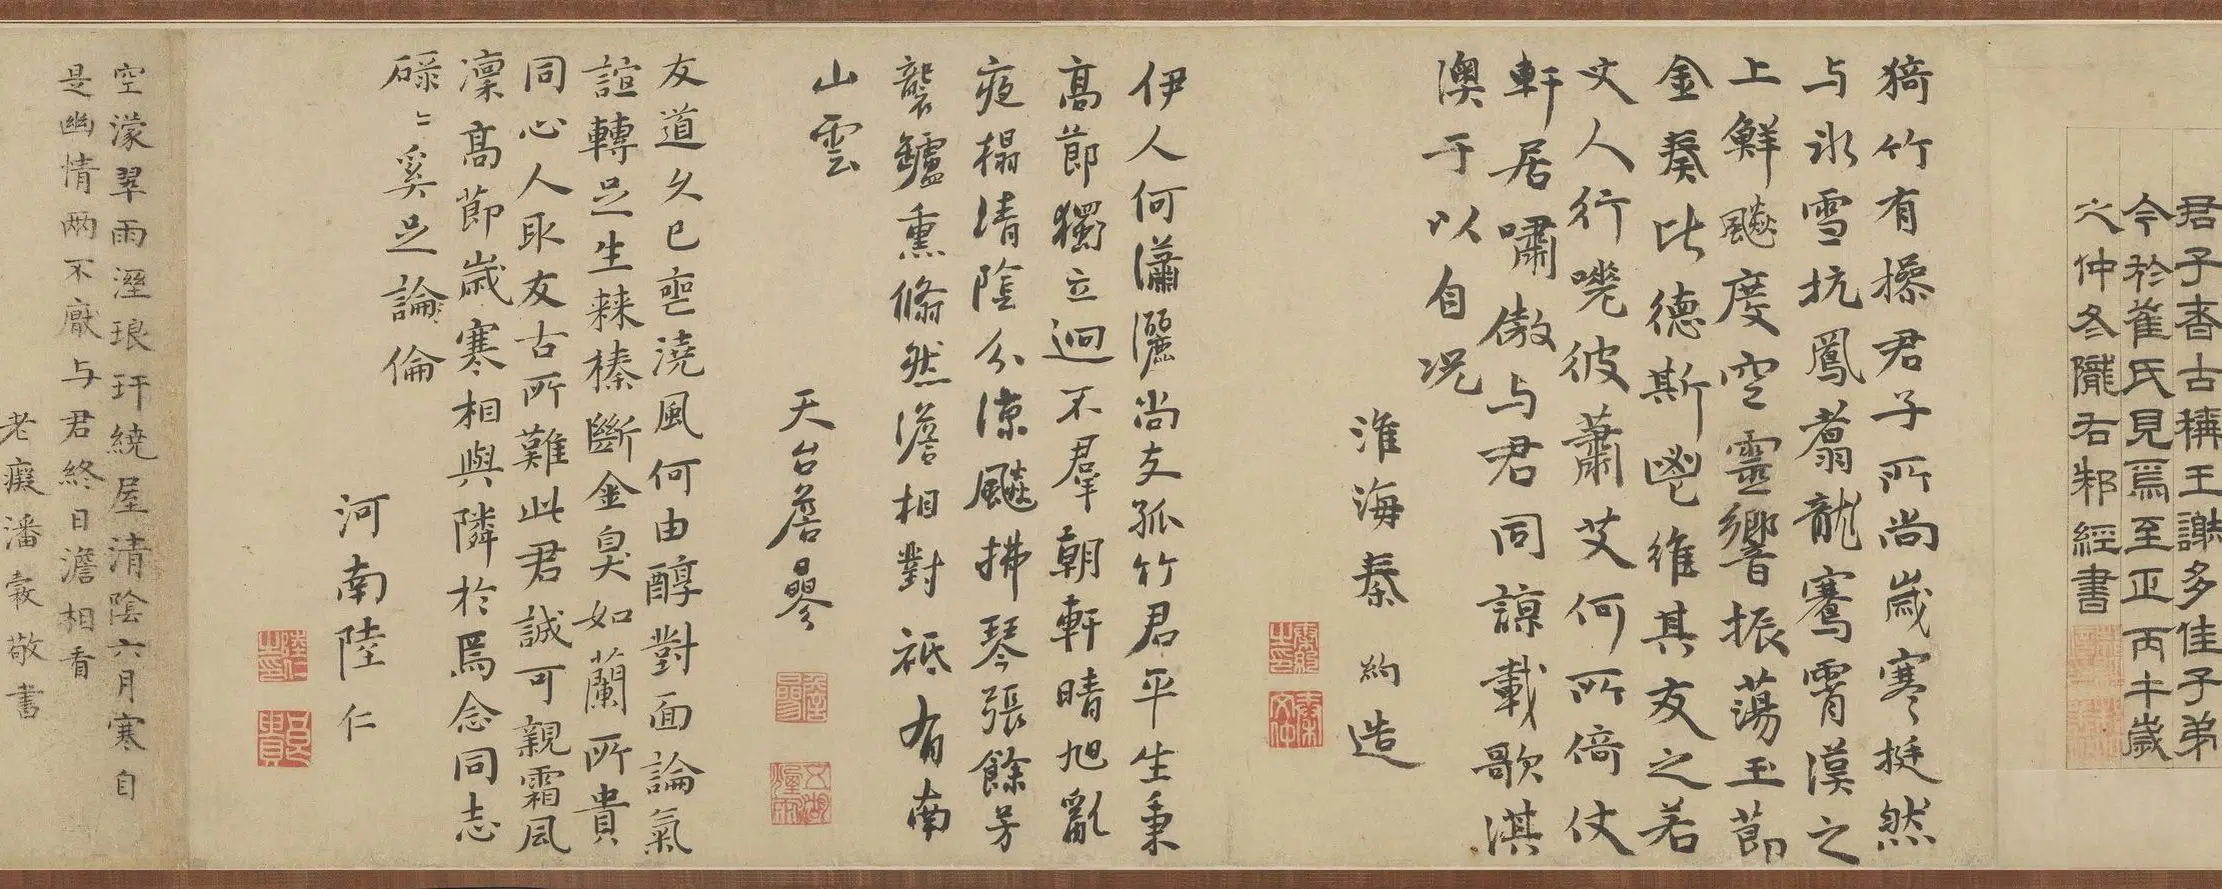 君子者古稱王謝多佳子弟
今於崔氏見焉至正丙午歲
之仲冬隴右邾經書
猗竹有操君子所尚歲寒挺然
与氷雪抗鳳翥龍騫霄漢之
上鮮飇度空靈響振蕩玉莭
金奏比德斯鬯維其友之若
文人行嘅彼蕭艾何所倚仗
軒居嘯傲与君同諒載歌淇
澳于以自况
淮海秦約造
伊人何瀟灑尚友孤竹君平生秉
高莭獨立迥不羣朝軒晴旭亂
夜榻清陰分涼飇拂琴張餘芳
襲鑪熏翛然澹相對祗有南
山雲
天台詹㬅
友道久已喪澆風何由醇對面論氣
誼轉足生棘榛斷金臭如蘭所貴
同心人取友古所難此君誠可親霜風
凜高莭歲寒相與隣於焉念同志
碌〻奚足論倫
河南陸仁
空濛翠雨溼琅玕繞屋清陰六月寒自
是幽情兩不厭与君終日澹相看
老癡潘敬書